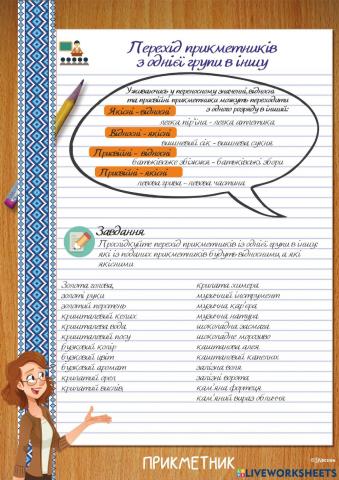 Перехід прикметників
з однієї групи в іншу
Уживаючись у переносному значенні, відносні
та присвійні прикметники можуть переходити
з одного розряду в інший:
Якісні - відносні
легка пір'їна - легка атлетика
Відносні - якісні
вишневий сік - вишнева сукня
Присвійні - відносні
батьківське збіжжя - батьківські збори
Присвійні - якісні
левова грива - левова частина
Завдання
Прослідкуйте перехід прикметників із однієї групи в іншу:
які із поданих прикметників будуть відносними, а які
якісними
Золота голова,
золоті руки
золотий перстень
кришталевий келих
кришталева вода
кришталевий посуд
бузковий колір
бузковий цвіт
бузковий аромат
крилатий орел
крилатий вислів,
крилата химера
музичний інструмент
музична кар'єра
музична натура
шоколадна засмага
шоколадне морозиво
каштанова алея
каштановий капелюх
залізна воля
залізні ворота
кам'яна фортеця
кам'яний вираз обличчя
ПРИКМЕТНИК
LIVEWORKSHEETS